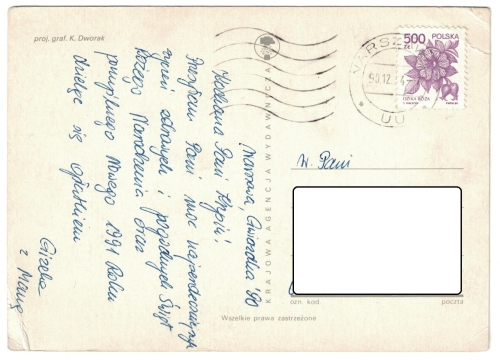 proj. graf. K. Dworak
KRAJOWA AGENCJA WYDAWNICZA
500 POLSKA
ZŁ
DZIKA RÓŻA
WARSZ
90.12.
UU
Warszawa, Gwiazdka '90
Kochana Pani Krysiu!
Przesyłam Pani moc najserdeczniejszych
życzeń zdrowych i pogodnych Świąt
Bożego Narodzenia oraz
pomyślnego Nowego 1991 Roku
dzieląc się opłatkiem
Gizela
z Mamą
W. Pani
ozn. kod. poczta
Wszelkie prawa zastrzeżone